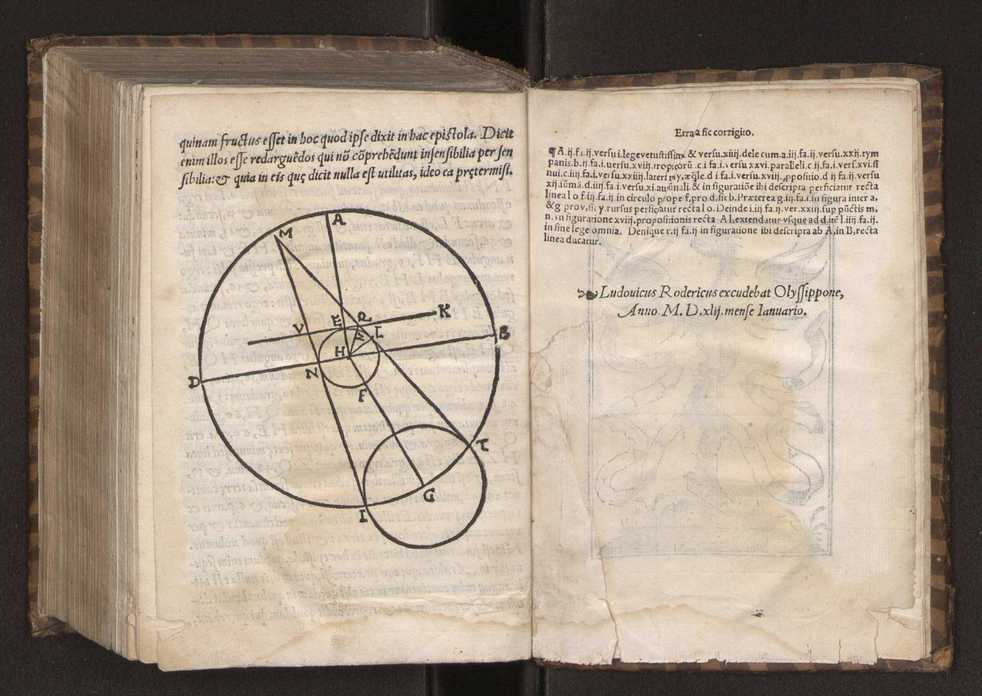 quinam fructus esset in hoc quod ipse dixit in hac epistola. Dicit
enim illos esse redarguēdos qui nō cōprehēdunt insensibilia per sen
sibilia: & quia in eis quę dicit nulla est utilitas, ideo ea prętermisi.
A
M
K
V
E
R
L
B
H
D
N
F
C
G
I
Errata sic corrigito.
versu i. lege vetustissim & versu. xiiij. dele cum. a. iij. fa. ij. versu. xxij. tym
panis. b. ij. fa. i. versu. xviij. reoporū .c. i. fa. i. versu xxvi. paralleli. c. ij. fa. i. versu xvi. si
nui. c. iij. fa. i. versu
xij. d. iiij. fa. i. versu. xi. & in figuratiōe ibi descripta perficiatur recta
linea l o f. iij. fa. ij. in circulo p/ope f, pro. d. sic b. Præterea g. iij. fa. i. in figura inter a,
& g pro v, si y rursus perficiatur recta l o. Deinde i. iij. fa. ij. ver. xxiij. sup pūctis m,
n. in figuratione xviij. propositionis recta A l. extendatur vsque ad d. in l. iij. fa. ij.
in fine lege omnia. Denique r. ij fa. ij in figuratione ibi descripta ab A, in B, recta
linea ducatur.
Ludouicus Rodericus excudebat Olyssippone,
Anno. M. D. xlij. mense Ianuario.